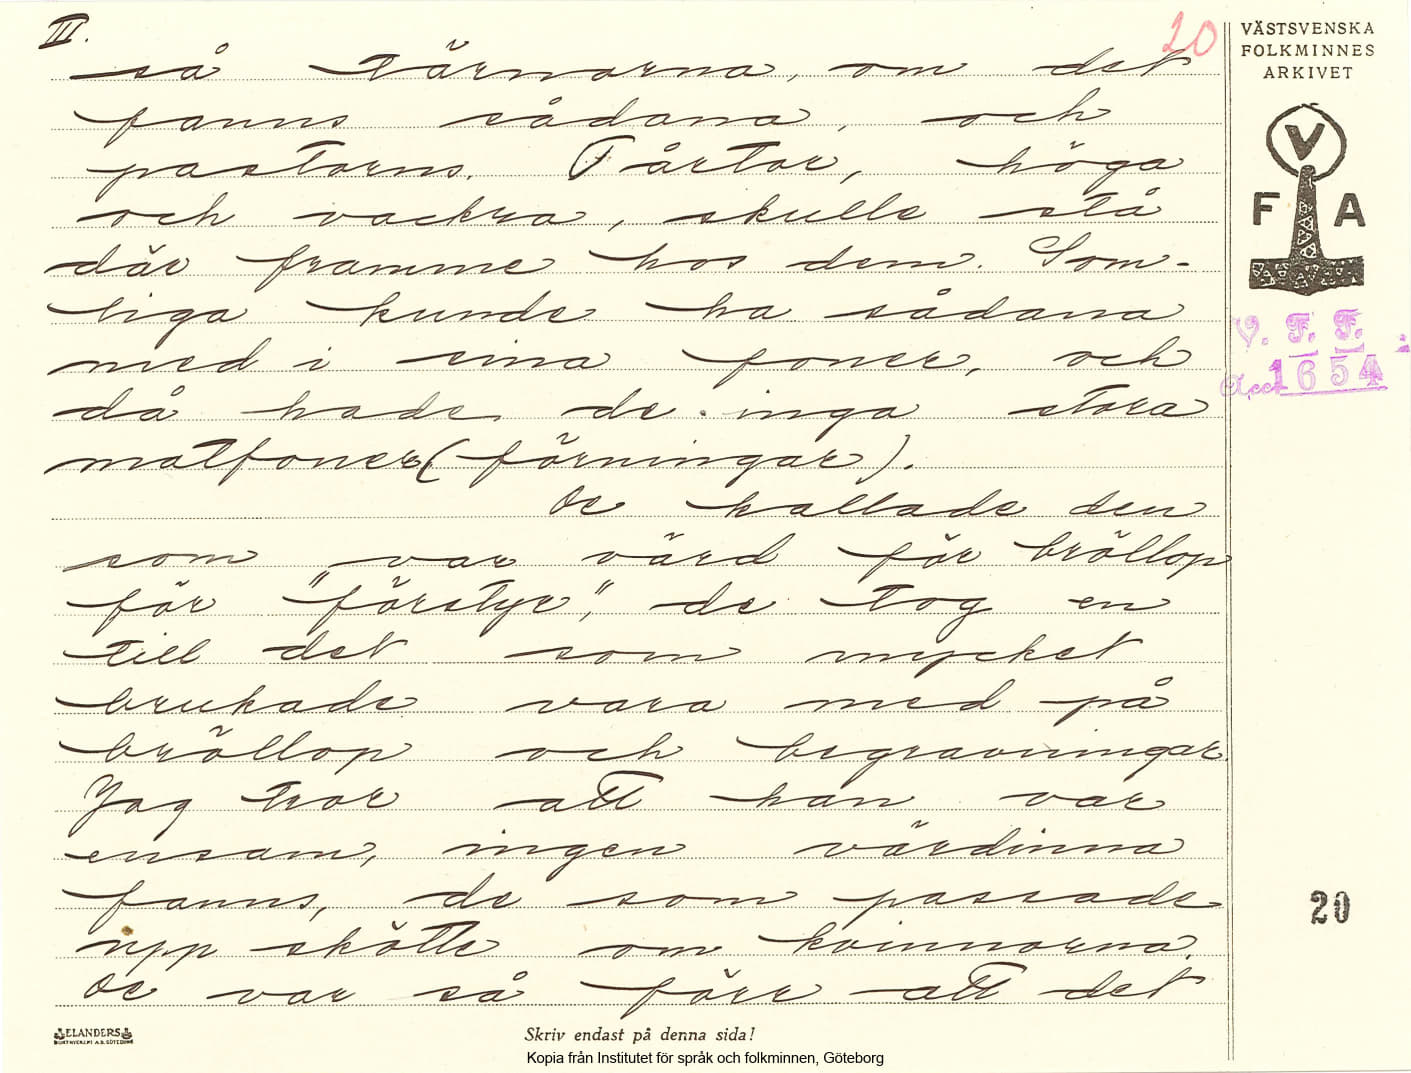 III.
20
så tärnorna, om det
fanns sådana, och
pastorns. Tårtor, höga
och vackra, skulle stå
där framme hos dem. Som-
liga kunde ha sådana
med i sina foner, och
då hade de inga stora
matfoner (förningar).
De kallade den
som var värd för bröllop
för "förstyr", de tog en
till det som mycket
brukade vara med på
bröllop och begravningar.
Jag tror att han var
ensam, ingen värdinna
fanns, de som passade
upp skötte om kvinnorna.
De var så förr att det
VÄSTSVENSKA
FOLKMINNES
ARKIVET
V
F A
V. F. F.
Acc 1654
20
ELANDERS
BOKTRYCKERI A.B. GÖTEBORG
Skriv endast på denna sida!
Kopia från Institutet för språk och folkminnen, Göteborg